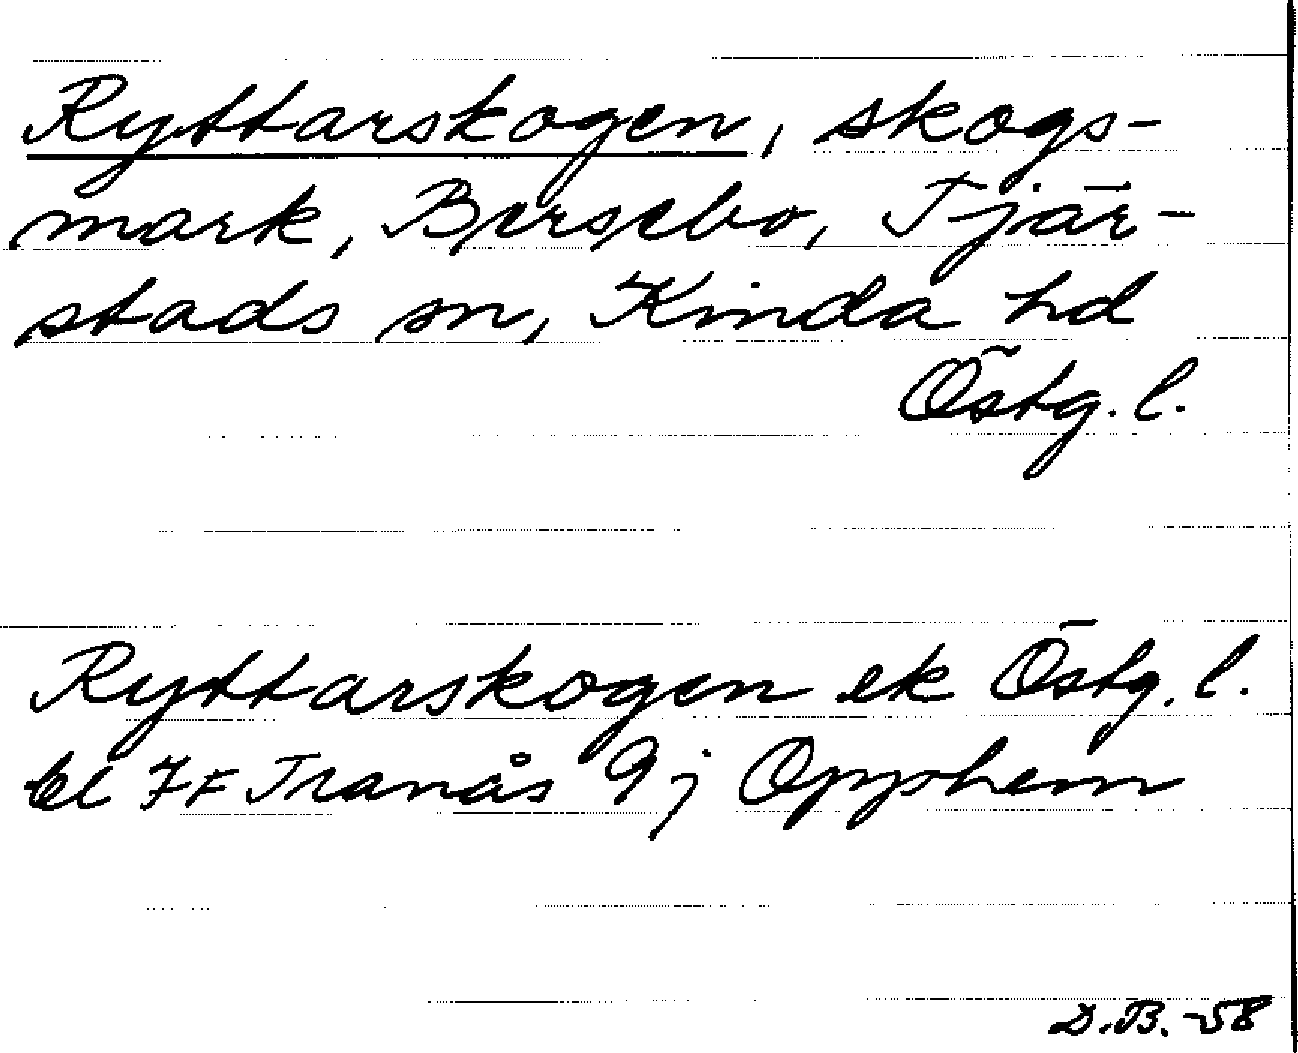 Ryttarskogen, skogs-
mark, Bersebo, Tjär-
stads sn, Kinda hd
Östg. l.
Ryttarskogen ek Östg. l.
bl 7F Tranås 9j Opphem
D.B. -58